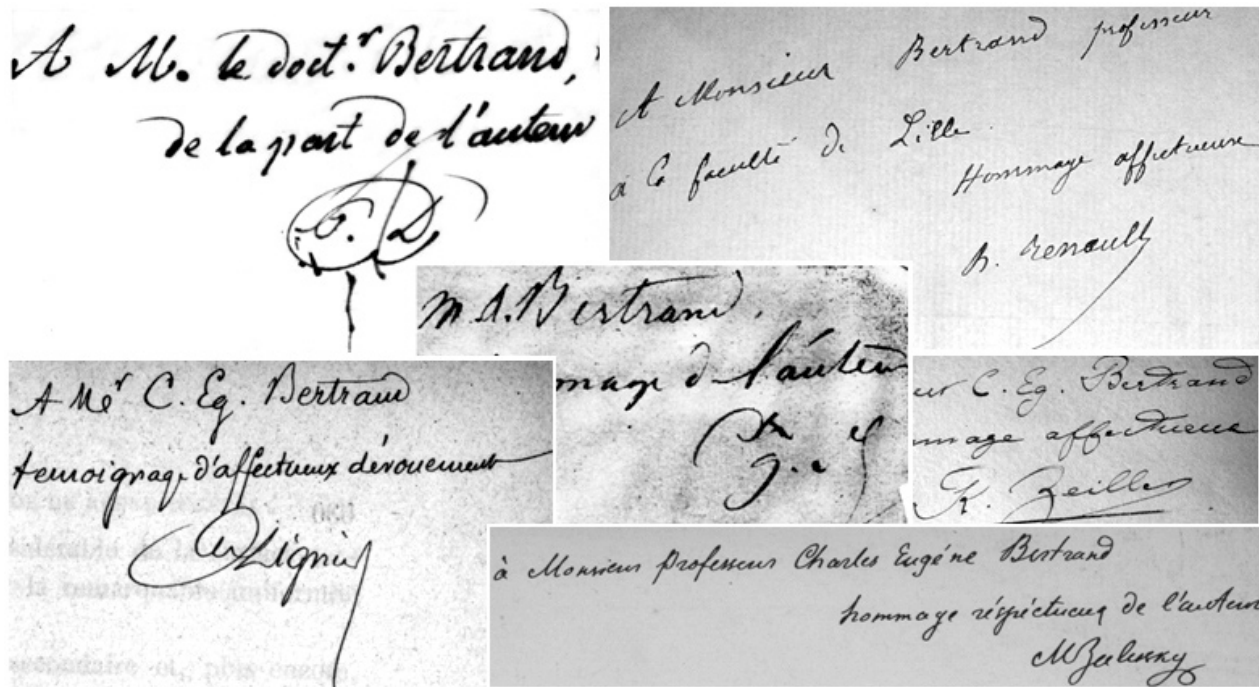 A M. le doct.r Bertrand,
de la part de l'auteur
A Monsieur Bertrand professeur
à la faculté de Lille
Hommage affectueux
B. Renault
M. A. Bertrand.
mage de l'auteur
A Mr C. Eg. Bertrand
temoignage d'affectueux dévouement
Lignier
eur C. Eg. Bertrand
mmage affectueux
R. Zeiller
à Monsieur professeur Charles Eugéne Bertrand
hommage réspéctueux de l'auteur
M Zalessky